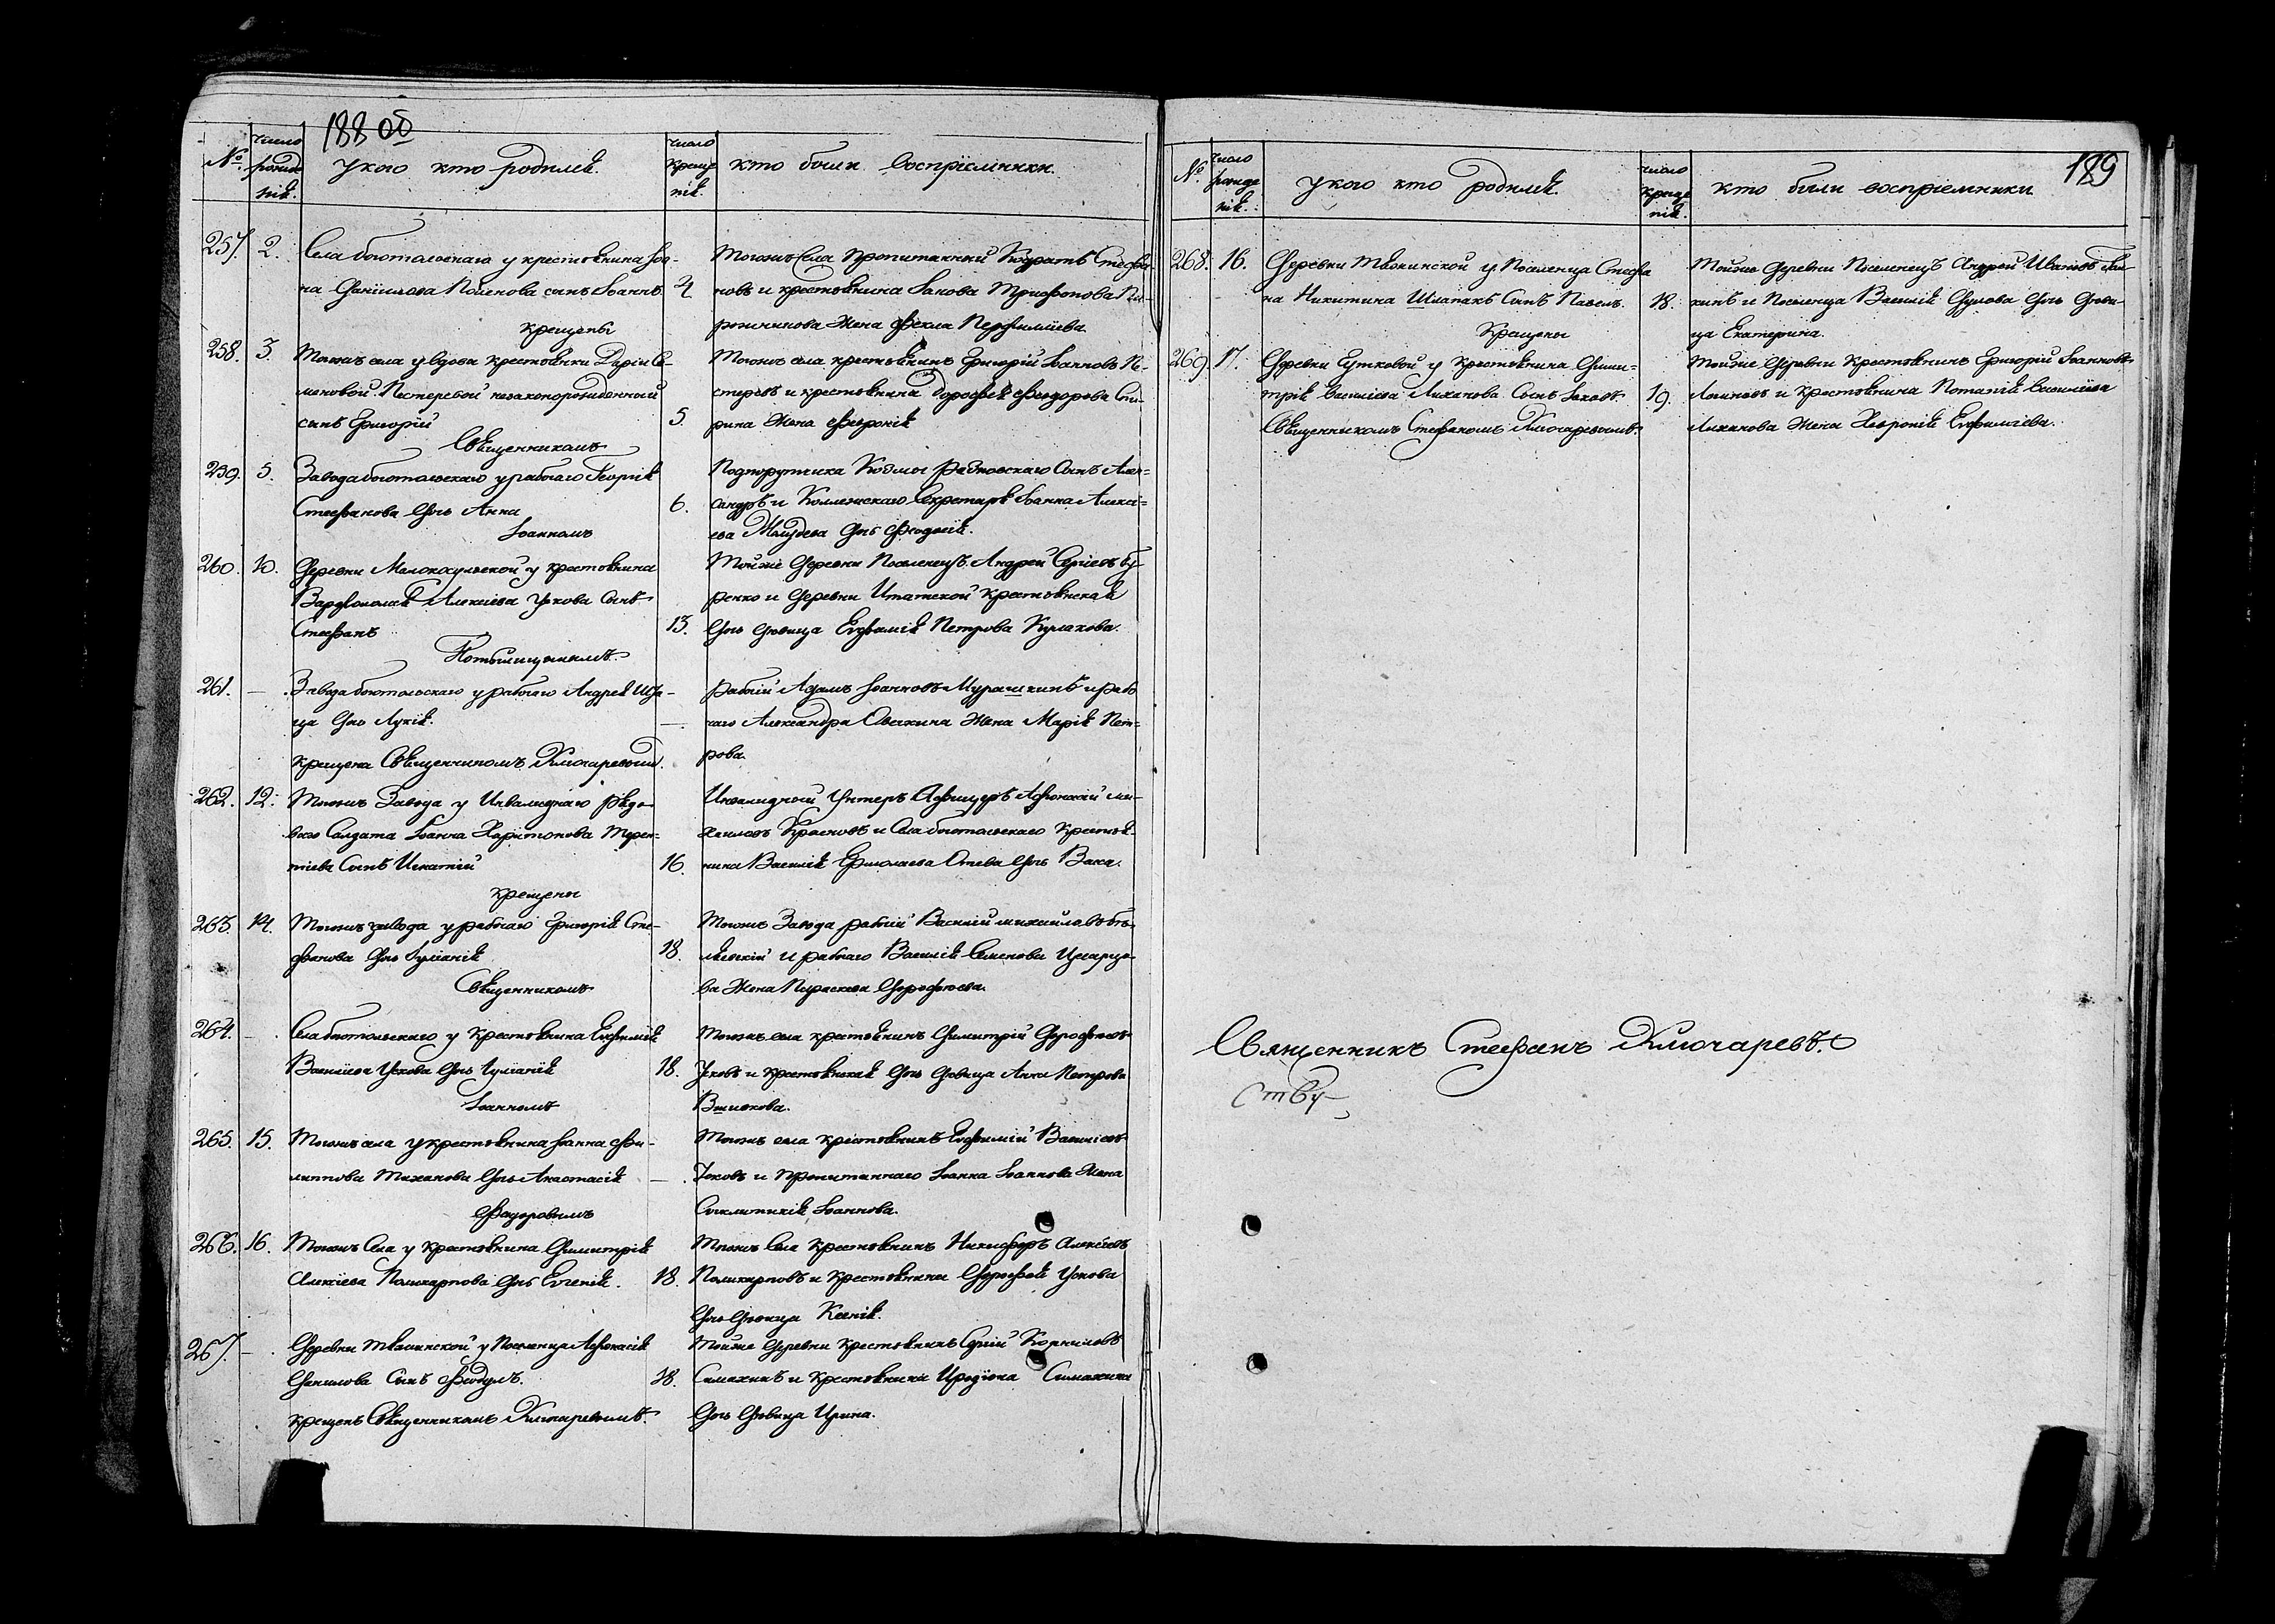 188 об
№ число рожде нія.
у кого кто родился.
число креще нія.
кто были воспріемники.
257. 2. Села боготольскаго у крестьянина Іоа-
на Даніилова сынъ Іоаннъ. 4.
крещены
Тогожъ Села пропитанный Стефа-
новъ и крестьянина Іакова Трифонова
жена Фекла Перфилиева
258. 3. Тогожъ села у вдовы крестьянки Даріи Се-
меновой Пестеревой незаконорожденный
сынъ Григорій 5.
Священникомъ
Тогожъ села крестьянинъ Григорій Іоанновъ Пе-
стеревъ и крестьянина Дорофея Феодорова Спи-
рина Жена Февронія
259. 5. Завода боготольскаго у рабочаго Георгія
Стефанова Дочь Анна 6.
Іоанномъ
Подпорутчика Козмы Сынъ Алек-
сандръ и Коллежскаго Секретаря Іоанна Алексі-
ева Дочь Феодосія.
260. 10. Деревни Малокосульской у крестьянина
Варфоломея Алексіева Ускова Сынъ
Стефанъ 13.
Тойже Деревни Поселенецъ Андрей Сергіевъ Бу-
ренко и Деревни Итатской Крестьянская
Дочь Девица Евфимія Петрова Кулакова.
261. — Завода боготольскаго у рабочаго Андрея
Дочь Лукія. —
крещена Священникомъ Ключаревымъ.
рабочій Адамъ Іоанновъ Мурашкинъ и рабо
чаго Александра Овсянкина Жена Марія Пет-
рова.
262. 12. Тогожъ Завода у Инвалиднаго рядо-
ваго Солдата Іоанна Харитонова Терен-
тіева Сынъ Игнатій 16.
крещены
Инвалидной Унтеръ Афицеръ Афонасій ми-
хаиловъ Красновъ и Села боготольскаго Крестья-
нина Василія Ермолаева Дочь Васса.
263. 14. Тогожъ завода у рабочаго Григорія Сте-
фанова Дочь Іуліанія 18.
Священникомъ
Тогожъ Завода рабочій Василій михайловъ
и рабочаго Василія Семенова
Жена Параскева Дорофеева.
264. — Села боготольскаго у Крестьянина Евфимія
Василіева Ускова Дочь Іуліанія 18.
Іоанномъ
Тогожъ села крестьянинъ Димитрій Дорофеевъ
Усковъ и крестьянская Дочь Девица Анна Петрова
265. 15. Тогожъ села у крестьянина Іоанна Фи-
липпова Дочь Анастасія —
Федоровымъ
Тогожъ села крестьянинъ Евфимій Василіевъ
Усковъ и Пропитаннаго Іоанна Іоаннова Жена
Синклитикія Іоаннова.
266. 16. Тогожъ Села у Крестьянина Димитрія
Алексіева Поликарпова Дочь Евгенія. 18.
Тогожъ Села Крестьянинъ Никифоръ Алексіевъ
Поликарповъ и Крестьянина Дорофея Ускова
Дочь Девица Ксенія.
267. — Деревни у Поселенца Афонасія
Данилова Сынъ Феодулъ. 18.
крещенъ Священникомъ Ключаревымъ.
Тойже Деревни Крестьянинъ Сергій Корниловъ
Симахинъ и Крестьянина Иродіона Симахина
Дочь Девица Ирина.
189
№ число рожде нія.
у кого кто родился.
число креще нія.
кто были воспріемники
268. 16. Деревни у Поселенца Стефа
на Никитина Шлапакъ Сынъ Павелъ. 18.
Крещены
Тойже Деревни Поселенецъ Андрей Ивановъ
и Поселенца Василія Дочь Деви-
ца Екатерина.
269. 17. Деревни у Крестьянина Дими-
трія Василіева Лиханова Сынъ Іаковъ 19.
Священникомъ Стефаномъ Ключаревымъ.
Тойже Деревни Крестьянинъ Григорій Іоанновъ
и Крестьянина Потапія Василіева
Лиханова Жена Хавронія Евфиміева.
Священникъ Стефанъ Ключаревъ.